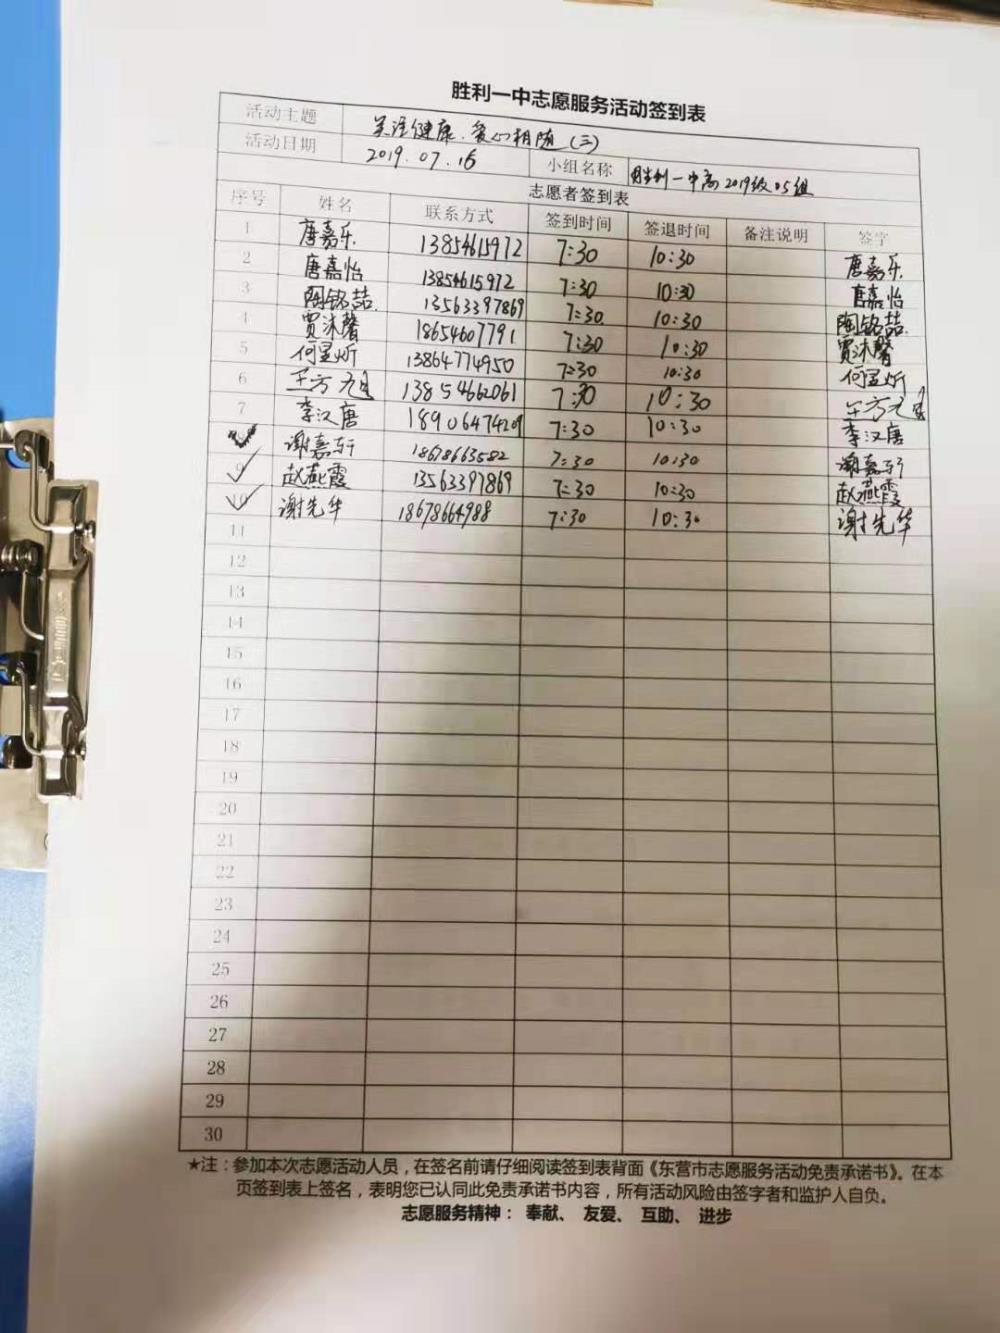 胜利一中志愿服务活动签到表
活动主题 关注健康、爱心相随(三)
活动日期 2019.07.16 小组名称 胜利一中高2019级05组
志愿者签到表
序号 姓名 联系方式 签到时间 签退时间 备注说明 签字
1 唐嘉乐 13854615972 7:30 10:30 唐嘉乐
2 唐嘉怡 13854615972 7:30 10:30 唐嘉怡
3 陶铭喆 13563397869 7:30 10:30 陶铭喆
4 贾沐馨 18654607791 7:30 10:30 贾沐馨
5 何昱炘 13864774950 7:30 10:30 何昱炘
6 王方 13854662061 7:30 10:30 王方
7 李汉唐 18906474209 7:30 10:30 李汉唐
谢嘉轩 18678663582 7:30 10:30 谢嘉轩
9 赵燕霞 13563397869 7:30 10:30 赵燕霞
10 谢先华 18678664988 7:30 10:30 谢先华
11
12
13
14
15
16
17
18
19
20
21
22
23
24
25
26
27
28
29
30
★注：参加本次志愿活动人员，在签名前请仔细阅读签到表背面《东营市志愿服务活动免责承诺书》。在本
页签到表上签名，表明您已认同此免责承诺书内容，所有活动风险由签字者和监护人自负。
志愿服务精神： 奉献、 友爱、 互助、 进步